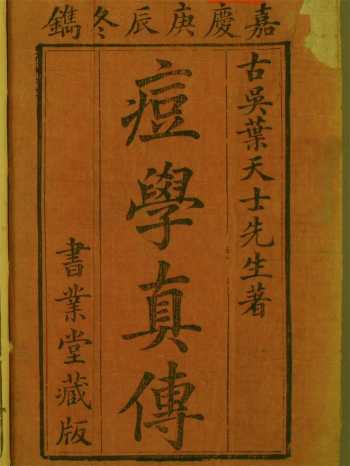 嘉慶庚辰冬鐫
古吳葉天士先生著
痘學真傳
書業堂藏版